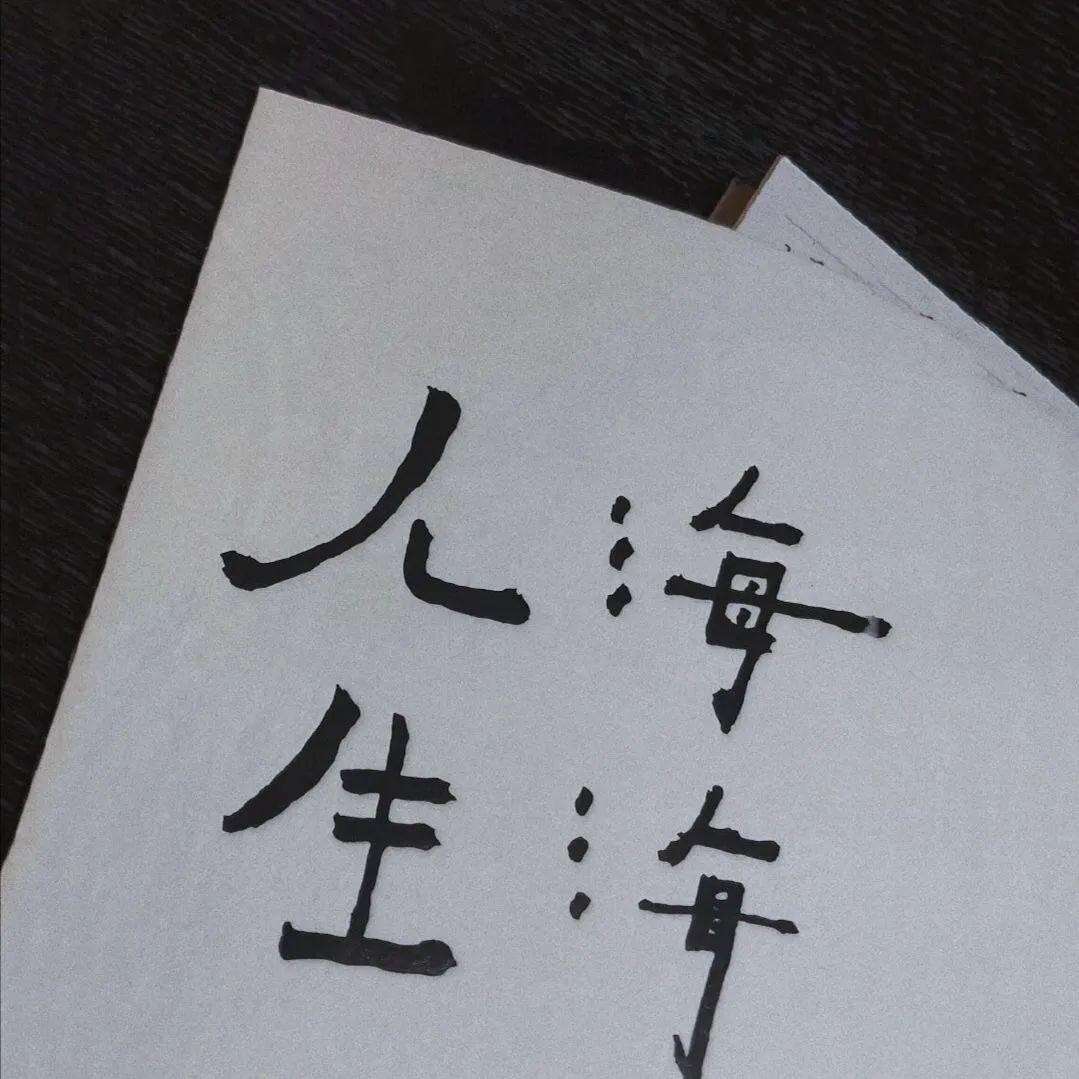 人生
海海